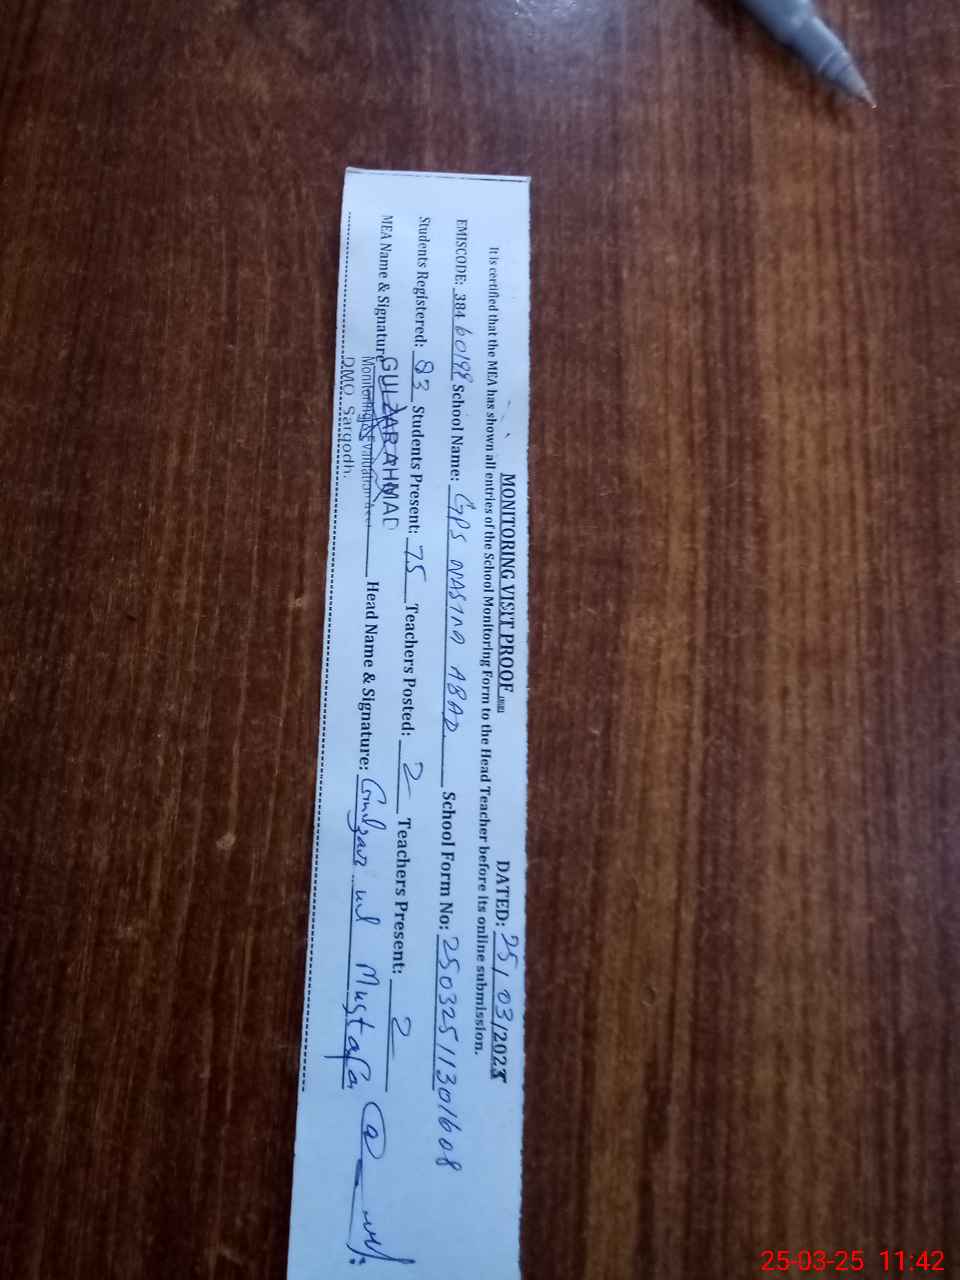 MONITORING VISIT PROOF DATED: 25/03/2025
It is certified that the MEA has shown all entries of the School Monitoring Form to the Head Teacher before its online submission.
EMISCODE: 38460198 School Name: GPS NASIRA ABAD School Form No: 25032511301608
Students Registered: 83 Students Present: 75 Teachers Posted: 2 Teachers Present: 2
MEA Name & Signature GULZAR AHMAD Head Name & Signature: Gulzar ul Mustafa
Monitoring & Evaluation
DMO Sargodh.
25-03-25 11:42